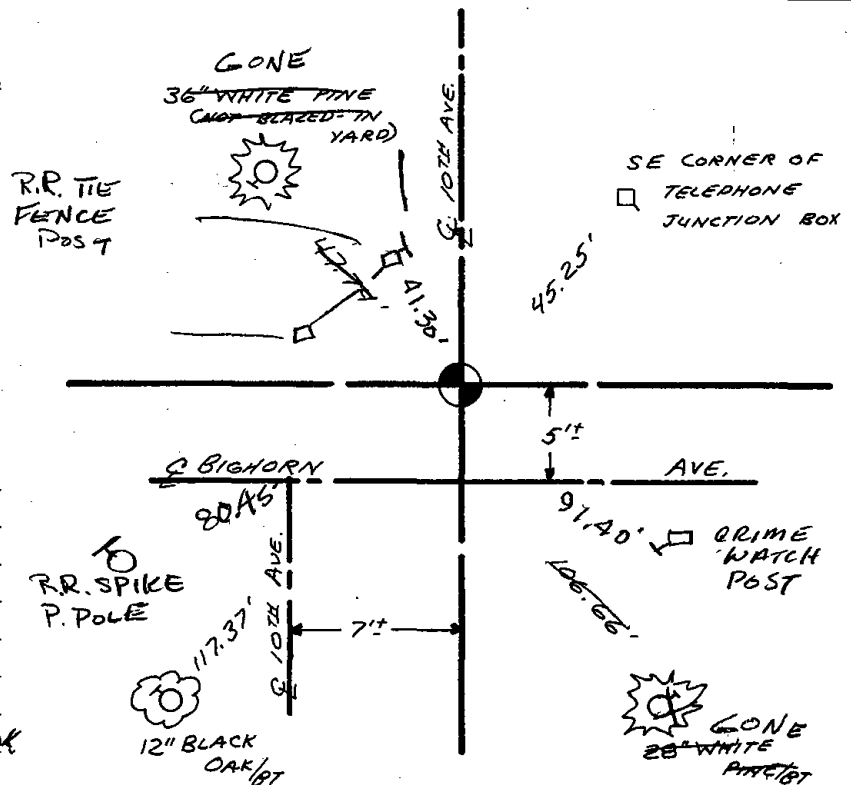 GONE
36" WHITE PINE
(NOT BLAZED - IN
YARD)
R.R. TIE
FENCE
POST
℄ 10TH AVE.
SE CORNER OF
TELEPHONE
JUNCTION BOX
41.30'
45.25'
5'±
℄ BIGHORN
AVE.
80.45'
97.40'
CRIME
WATCH
POST
R.R. SPIKE
P. POLE
106.66'
117.37'
℄ 10TH AVE.
7'±
12" BLACK
OAK/BT
GONE
28" WHITE
PINE/BT